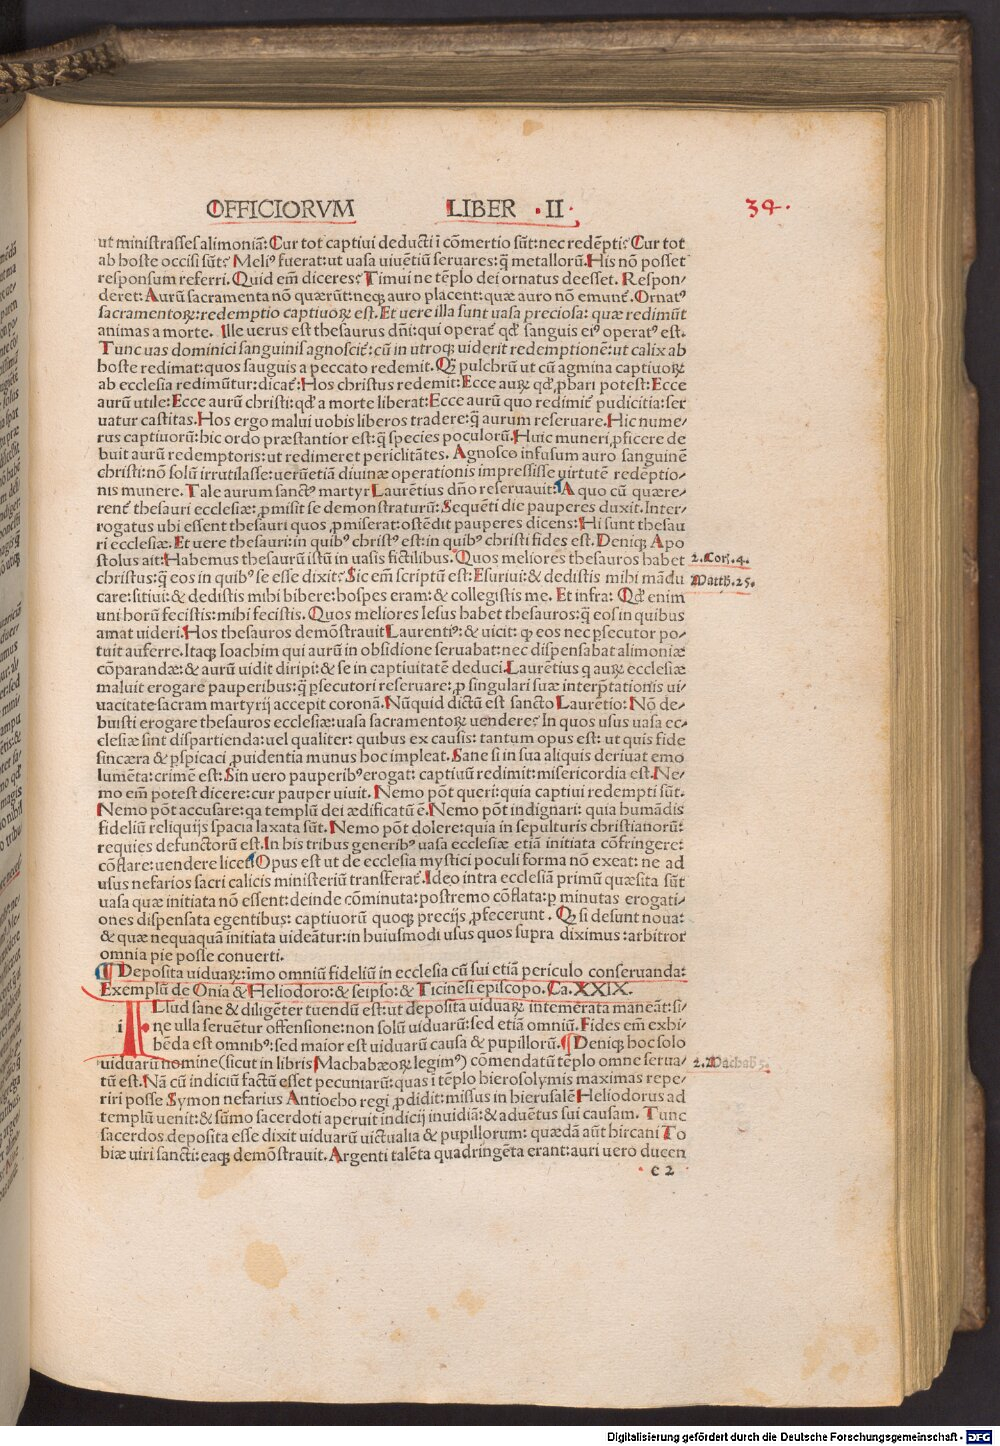 OFFICIORVM LIBER .II. 34.
ut ministrasses alimoniã: Cur tot captiui deducti ĩ cõmertio sũt: nec redẽpti? Cur tot
ab hoste occisi sũt? Meliꝰ fuerat: ut uasa uiuẽtiũ seruares: q̃ metallorũ. His nõ posset
responsum referri. Quid em̃ diceres? Timui ne tẽplo dei ornatus deesset. Respon⸗
deret: Aurũ sacramenta nõ quærũt: neqꝫ auro placent: quæ auro nõ emunt̃. Ornatꝰ
sacramentoꝝ: redemptio captiuoꝝ est. Et uere illa sunt uasa preciosa: quæ redimũt
animas a morte. Ille uerus est thesaurus dñi: qui operat̃ qđ sanguis eiꝰ operatꝰ est.
Tunc uas dominici sanguinis agnoscit̃: cũ in utroqꝫ uiderit redemptionẽ: ut calix ab
hoste redimat: quos sauguis a peccato redemit. Qꝫ pulchrũ ut cũ agmina captiuoꝝ
ab ecclesia redimũtur: dicat̃: Hos christus redemit: Ecce auꝝ qđ ꝓbari potest: Ecce
aurũ utile: Ecce aurũ christi: qđ a morte liberat: Ecce aurũ quo redimit̃ pudicitia: ser
uatur castitas. Hos ergo malui uobis liberos tradere: q̃ aurum reseruare. Hic nume⸗
rus captiuorũ: hic ordo præstantior est: q̃ species poculorũ. Huic muneri ꝓficere de
buit aurũ redemptoris: ut redimeret periclitãtes. Agnosco infusum auro sanguinẽ
christi: nõ solũ irrutilasse: uerũetiã diuinæ operationis impressisse uirtutẽ redẽptio⸗
nis munere. Tale aurum sanctꝰ martyr Laurẽtius dño reseruauit: A quo cũ quære⸗
rent̃ thesauri ecclesiæ: ꝓmisit se demonstraturũ: Sequẽti die pauperes duxit. Inter⸗
rogatus ubi essent thesauri quos ꝓmiserat: ostẽdit pauperes dicens: Hi sunt thesau
ri ecclesiæ. Et uere thesauri: in quibꝰ christꝰ est: in quibꝰ christi fides est. Deniqꝫ Apo
stolus ait: Habemus thesaurũ istũ in uasis fictilibus. Quos meliores thesauros habet 2. Cor. 4.
christus: q̃ eos in quibꝰ se esse dixit? Sic em̃ scriptũ est: Esuriui: & dedistis mihi mãdu Matth. 25.
care: sitiui: & dedistis mihi bibere: hospes eram: & collegistis me. Et infra: Qđ enim
uni horũ fecistis: mihi fecistis. Quos meliores Iesus habet thesauros: q̃ eos in quibus
amat uideri. Hos thesauros demõstrauit Laurentiꝰ: & uicit: qꝫ eos nec ꝑsecutor po⸗
tuit auferre. Itaqꝫ Ioachim qui aurũ in obsidione seruabat: nec dispensabat alimoniæ
cõparandæ: & aurũ uidit diripi: & se in captiuitatẽ deduci. Laurẽtius q auꝝ ecclesiæ
maluit erogare pauperibus: q̃ ꝑsecutori reseruare: ꝓ singulari suæ interp̃tationis ui⸗
uacitate sacram martyrij accepit coronã. Nũquid dictũ est sancto Laurẽtio: Nõ de⸗
buisti erogare thesauros ecclesiæ: uasa sacramentoꝝ uendere? In quos usus uasa ec⸗
clesiæ sint dispartienda: uel qualiter: quibus ex causis: tantum opus est: ut quis fide
sincæra & ꝑspicaci ꝓuidentia munus hoc impleat. Sane si in sua aliquis deriuat emo
lumẽta: crimẽ est: Sin uero pauperibꝰ erogat: captiuũ redimit: misericordia est. Ne⸗
mo em̃ potest dicere: cur pauper uiuit. Nemo põt queri: quia captiui redempti sũt.
Nemo põt accusare: qa templũ dei ædificatũ ẽ. Nemo põt indignari: quia humãdis
fideliũ reliquijs spacia laxata sũt. Nemo põt dolere: quia in sepulturis christianorũ:
requies defunctorũ est. In his tribus generibꝰ uasa ecclesiæ etiã initiata cõfringere:
cõflare: uendere licet Opus est ut de ecclesia mystici poculi forma nõ exeat: ne ad
usus nefarios sacri calicis ministeriũ transferat̃. Ideo intra ecclesiã primũ quæsita sũt
uasa quæ initiata nõ essent: deinde cõminuta: postremo cõflata: ꝑ minutas erogati⸗
ones dispensata egentibus: captiuorũ quoqꝫ precijs ꝓfecerunt. Qꝫ si desunt noua:
& quæ nequaquã initiata uideãtur: in huiusmodi usus quos supra diximus: arbitror
omnia pie posse conuerti.
¶ Deposita uiduaꝝ: imo omniũ fideliũ in ecclesia cũ sui etiã periculo conseruanda:
Exemplũ de Onia & Heliodoro: & seipso: & Ticinẽsi episcopo. Ca. XXIX.
iLlud sane & diligẽter tuendũ est: ut deposita uiduaꝝ intemerata maneãt: si⸗
ne ulla seruẽtur offensione: non solũ uiduarũ: sed etiã omniũ. Fides em̃ exhi⸗
bẽda est omnibꝰ: sed maior est uiduarũ causa & pupillorũ. ¶ Deniqꝫ hoc solo
uiduarũ nomine (sicut in libris Machabæoꝝ legimꝰ) cõmendatũ tẽplo omne serua⸗ 2. Machab. 5.
tũ est. Nã cũ indiciũ factũ esset pecuniarũ: quas i tẽplo hierosolymis maximas repe⸗
riri posse Symon nefarius Antiocho regi ꝓdidit: missus in hierusalẽ Heliodorus ad
templũ uenit: & sũmo sacerdoti aperuit indicij inuidiã: & aduẽtus sui causam. Tunc
sacerdos deposita esse dixit uiduarũ uictualia & pupillorum: quædã aũt hircani To
biæ uiri sancti: eaqꝫ demõstrauit. Argenti talẽta quadringẽta erant: auri uero ducen
c 2
Digitalisierung gefördert durch die Deutsche Forschungsgemeinschaft - DFG